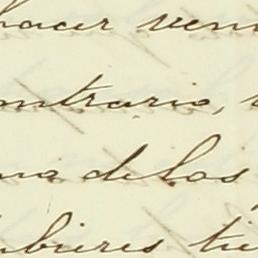 hacer ven
ontrario,
na de los
ubieres tie